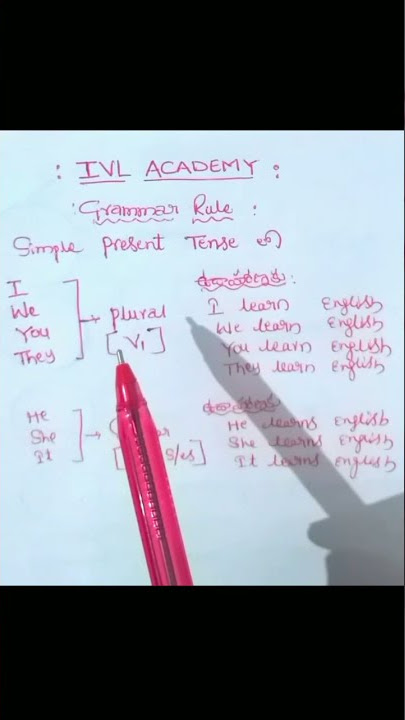 : IVL ACADEMY :
Grammar Rule :
Simple Present Tense లో
I
We
You
They
Plural
[V1]
ఉదాహరణకు :
I learn English
We learn English
You learn English
They learn English
He
She
It
s/es]
ఉదాహరణకు
He learns English
She learns English
It learns English